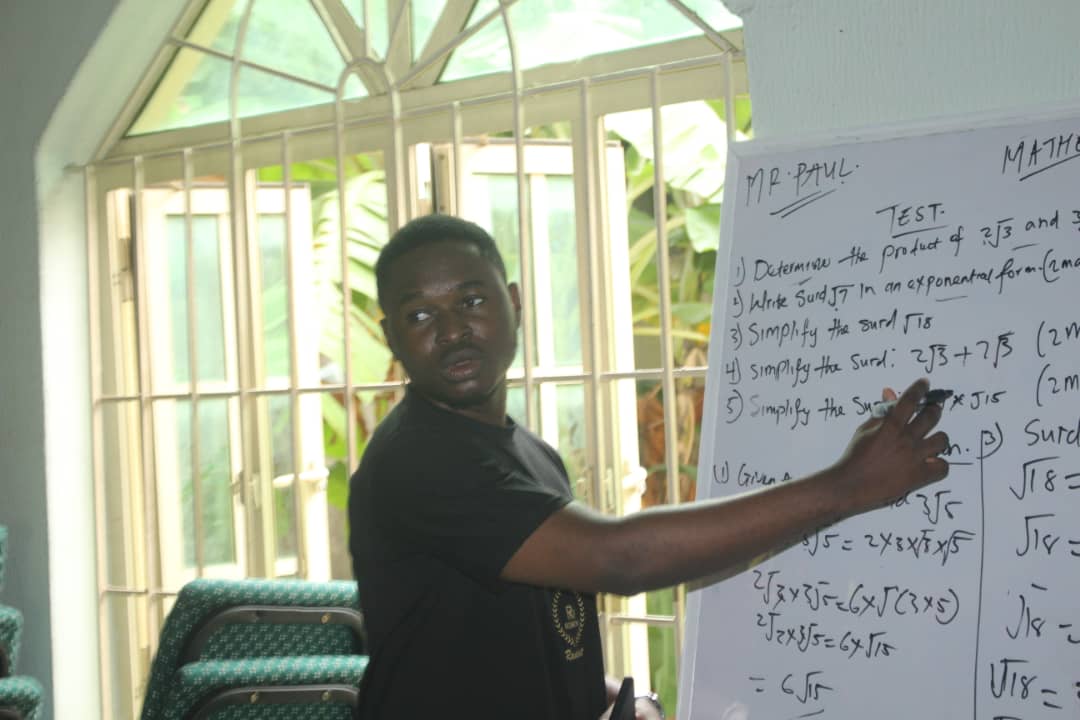 MR. PAUL.
MATHE
TEST.
1) Determine the product of 2√3 and 3
2) Write Surd √7 in an exponential form. (2ma
3) Simplify the surd √18
4) Simplify the Surd: 2√3 + 7√3 (2m
5) Simplify the Su × √15 (2m
n.
1) Given
3√5
3√5 = 2×3×√3×√5
2√3×3√5 = 6×√(3×5)
2√2×3√5 = 6×√15
= 6√15
3) Surd
√18 =
√18 =
√18 =
√18 =